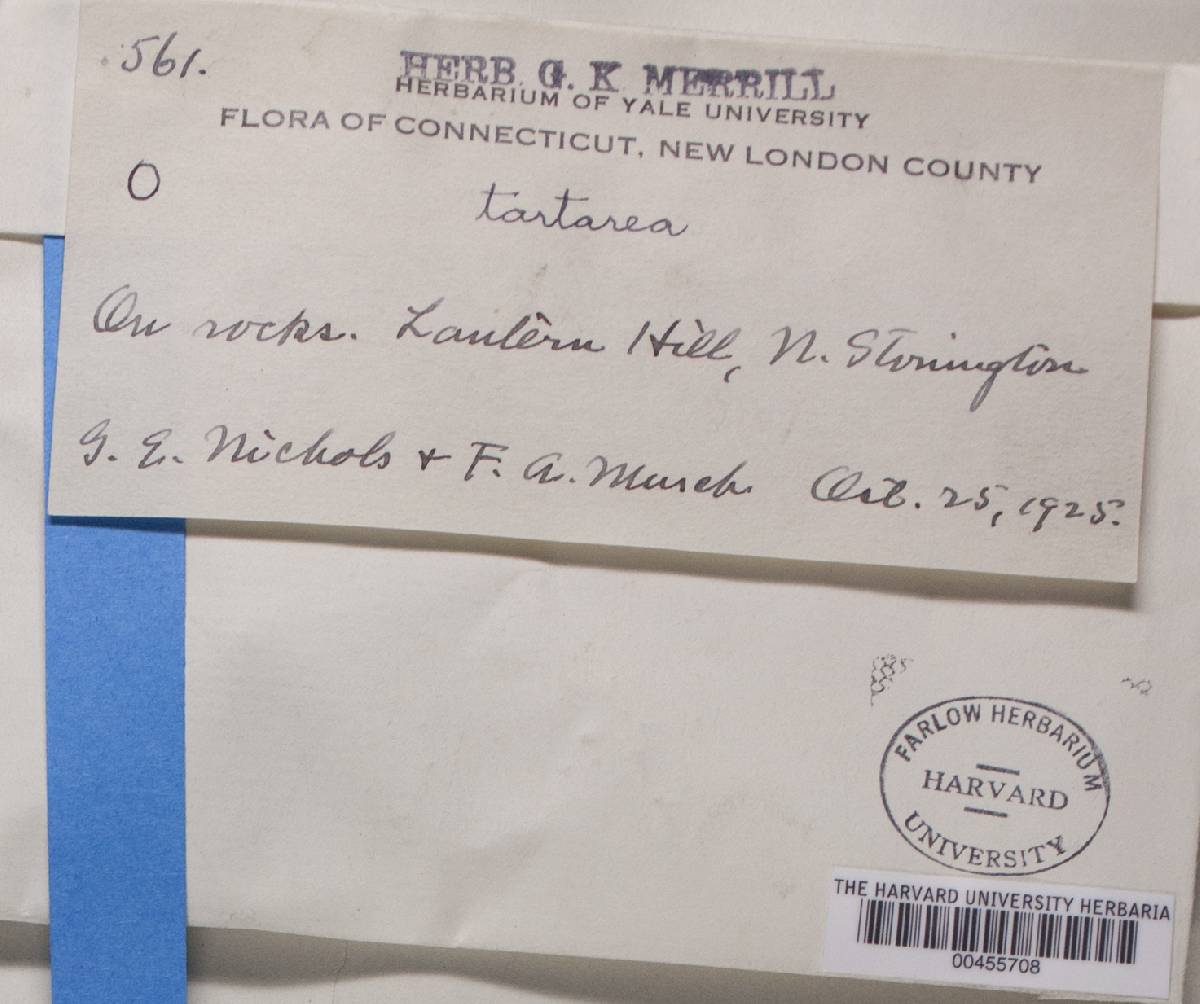 561.
HERB. G. K MERRILL
HERBARIUM OF YALE UNIVERSITY
FLORA OF CONNECTICUT, NEW LONDON COUNTY
O
tartarea
On rocks. Lantern Hill, N. Stonington
G. E. Nichols & F. A. Musch Oct. 25, 1925.
FARLOW HERBARIUM
HARVARD
UNIVERSITY
THE HARVARD UNIVERSITY HERBARIA
00455708